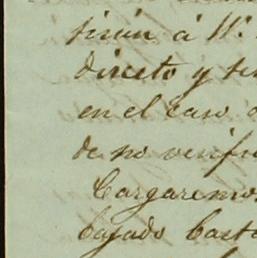 á W.
directo y
en el caso
de no verifi
Cargaremos
bajado basta